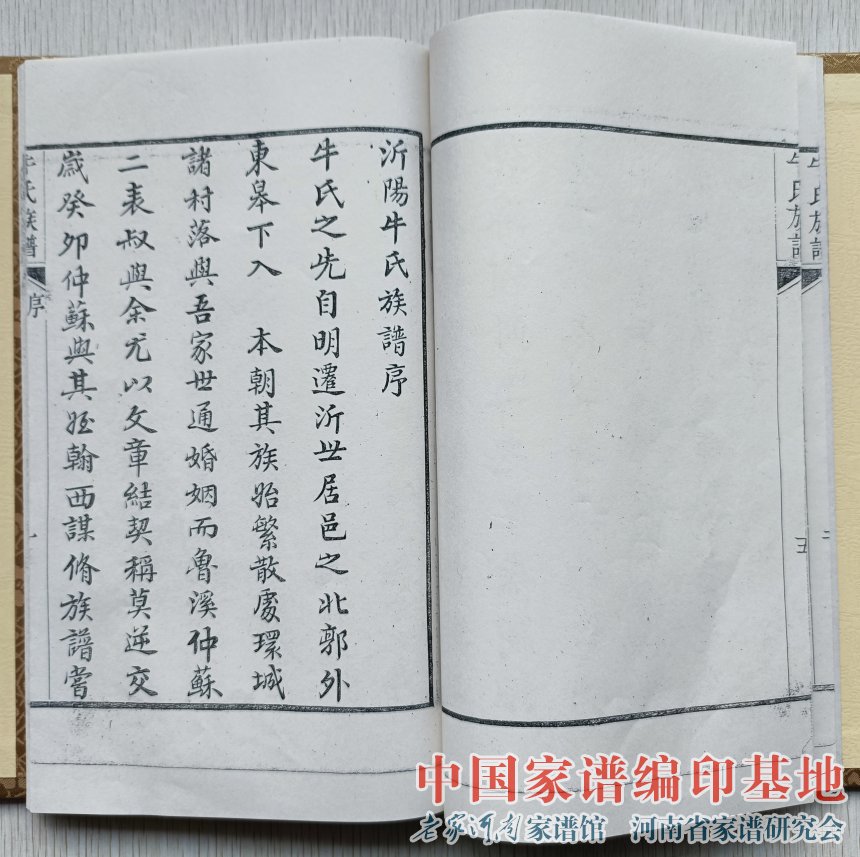 沂陽牛氏族譜序
牛氏之先自明遷沂世居邑之北郭外
東皋下入　本朝其族始繁散處環城
諸村落與吾家世通婚姻而魯溪仲蘇
二表叔與余尤以文章結契稱莫逆交
歲癸卯仲蘇與其姪翰西謀脩族譜嘗
牛氏族譜
序
一
牛氏族譜
五
牛氏族譜
中国家谱编印基地
老家河南家谱馆 河南省家谱研究会